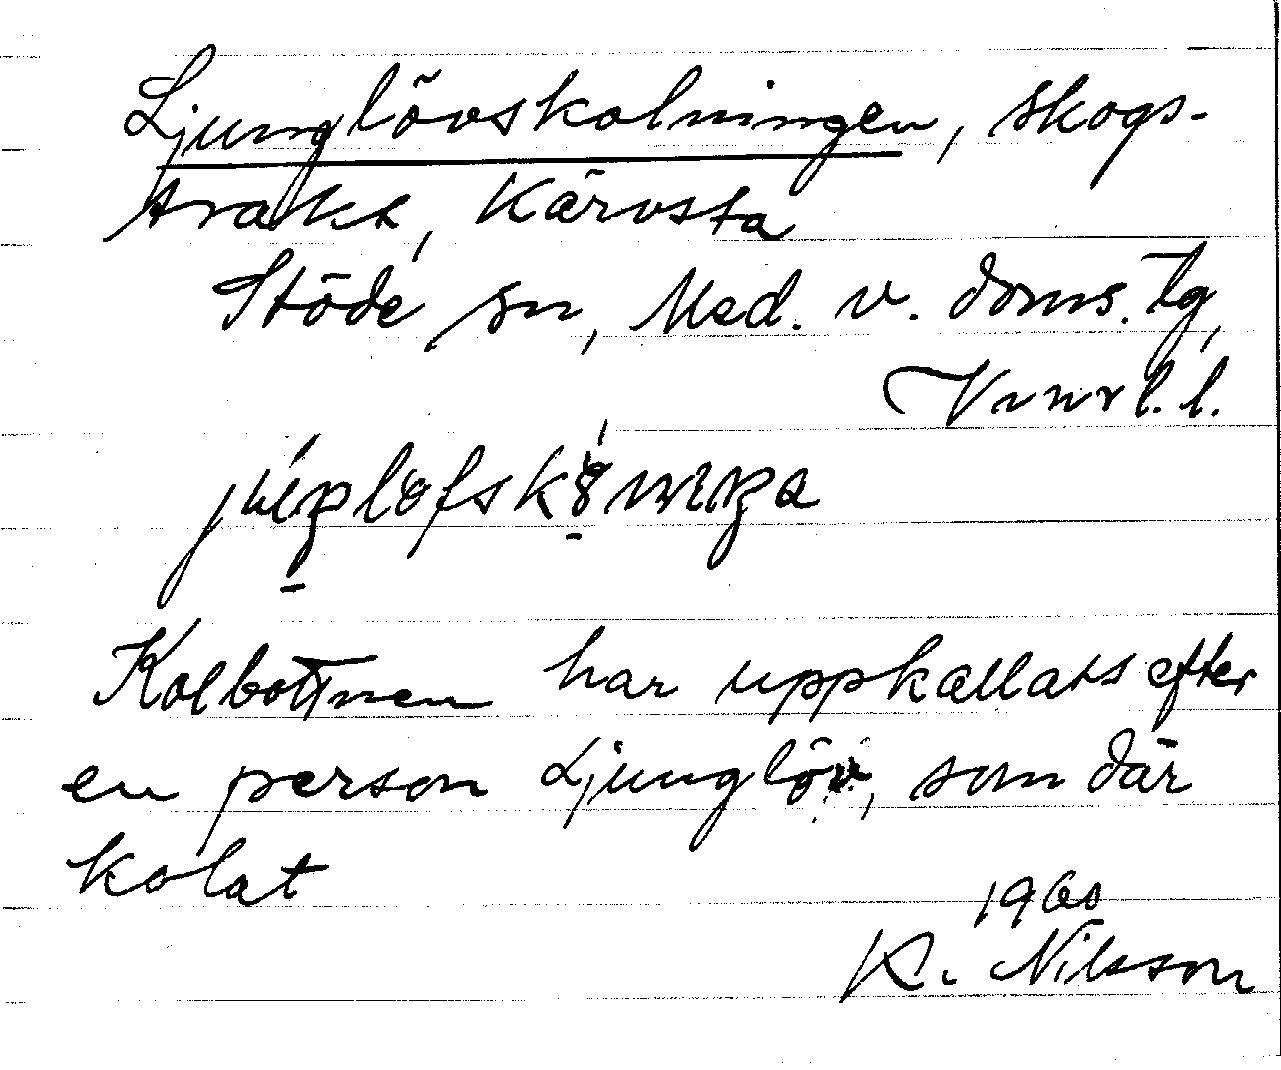 Ljunglövskolningen, skogs-
trakt, Kärvsta
Stöde sn, Med. v. doms. tg,
Vrnrl. l.
Kolbottnen har uppkallats efter
en person Ljunglöv, som där
kolat
1960
K. Nilsson